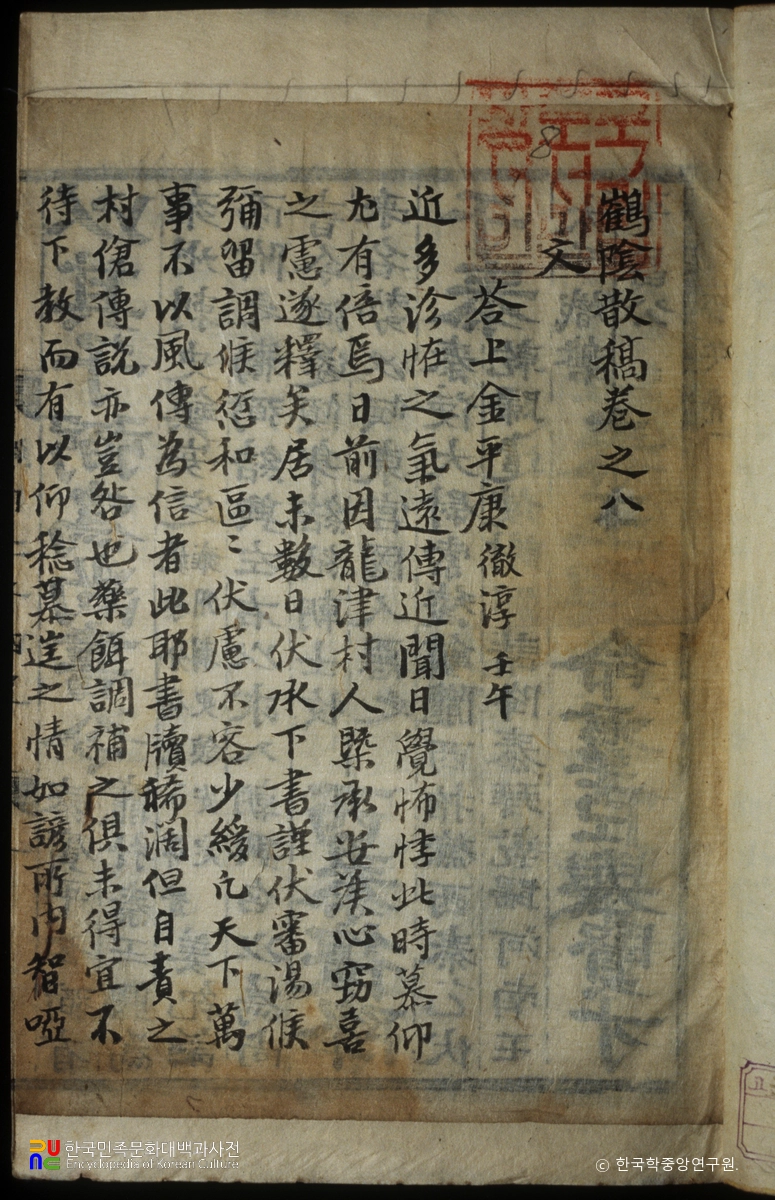 鶴陰散稿卷之八
文
答上金平康 徹淳 壬午
近多診恠之氣遠傳近聞日覺怖悸此時慕仰
尤有倍焉日前因龍津村人槩承安候心竊喜
之慮遂釋矣居未數日伏承下書謹伏審湯候
彌留調候愆和區〻伏慮不容少緩凡天下萬
事不以風傳為信者此耶書牘稀濶但自責之
村傖傳說亦豈咎也藥餌調補之俱未得宜不
待下教而有以仰稔慕溸之情如諺所内智啞
8
한국민족문화대백과사전
Encyclopedia of Korean Culture
© 한국학중앙연구원.